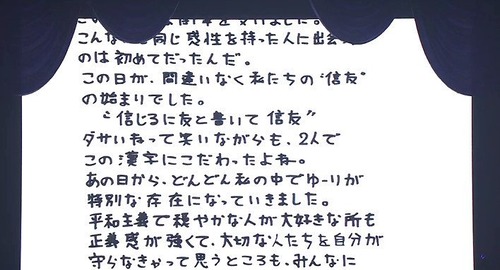 こんな 同じ感性を持った人に出会
のは初めてだったんだ。
この日が、間違いなく私たちの“信友”
の始まりでした。
“信じるに友と書いて信友”
ダサいねって笑いながらも、2人で
この漢字にこだわったよねー。
あの日から、どんどん私の中でゆーりが
特別な存在になっていきました。
平和主義で穏やかな人が大好きな所も
正義感が強くて、大切な人たちを自分が
守らなきゃって思うところも、みんなに